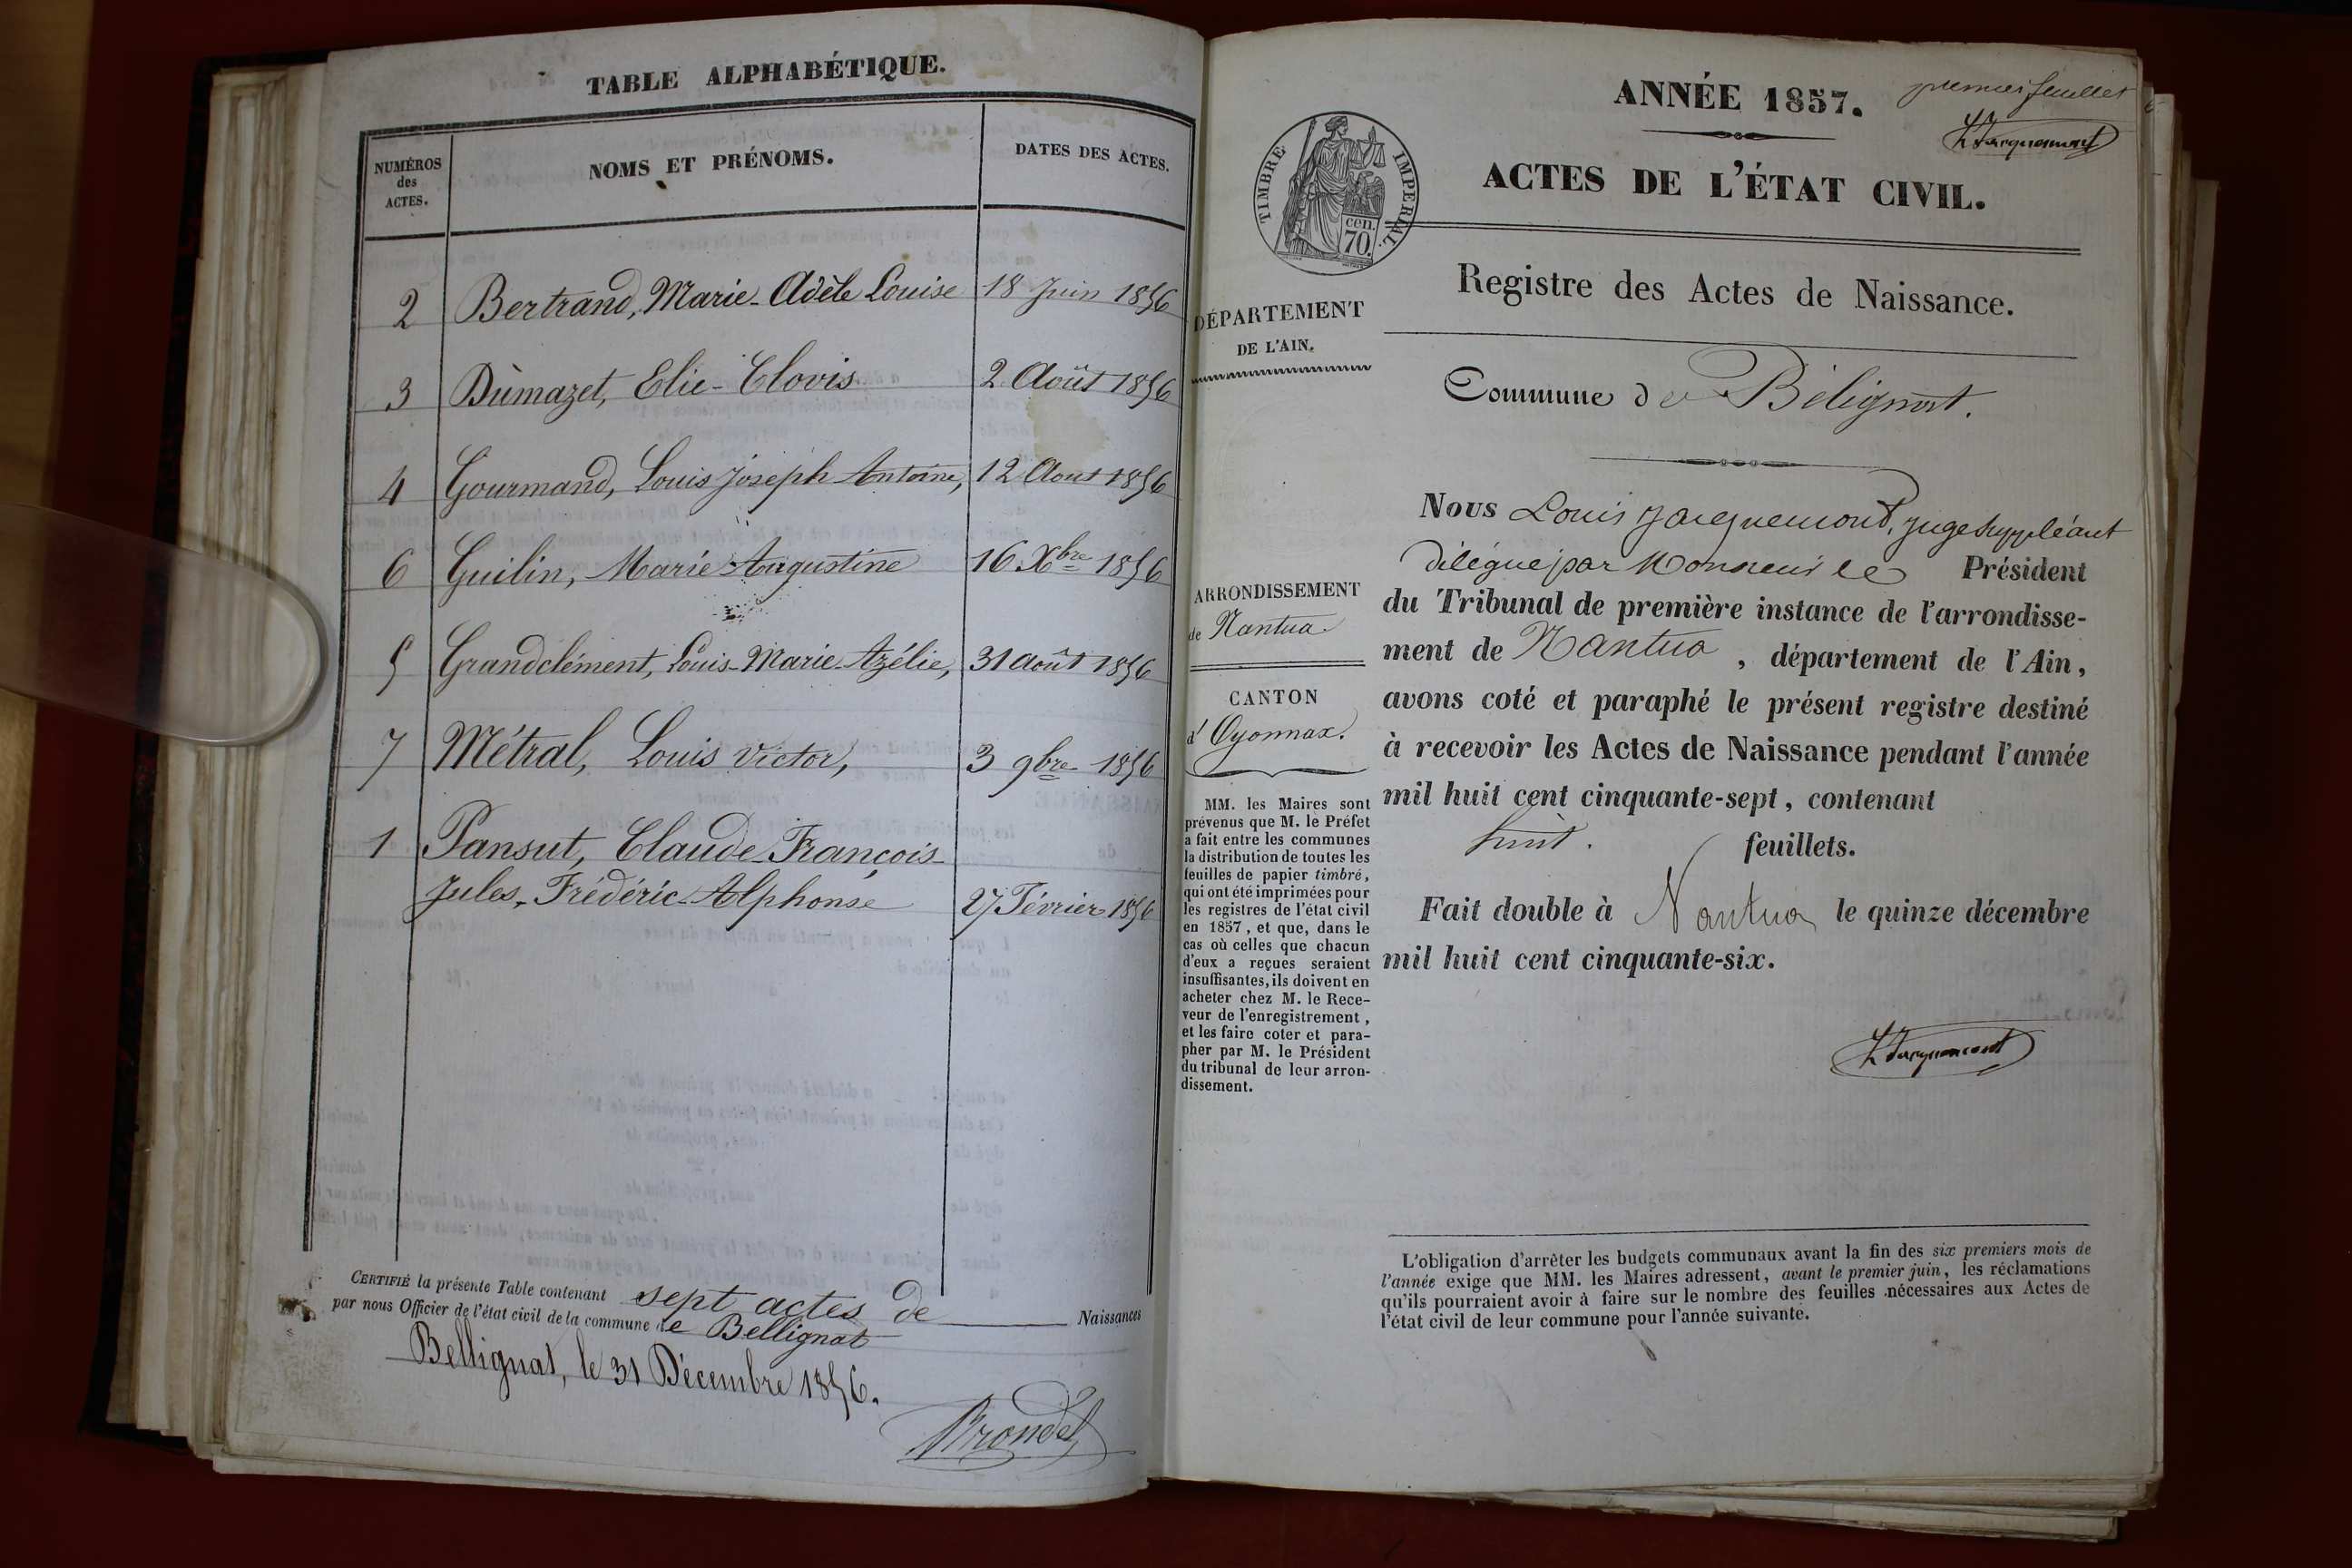 TABLE ALPHABÉTIQUE.
NUMÉROS
des
ACTES.
NOMS ET PRÉNOMS.
DATES DES ACTES.
2 Bertrand, Marie-Adèle Louise 18 Juin 1856
3 Dumazet, Elie-Clovis 2 Août 1856
4 Gourmand, Louis Joseph Antoine, 12 Aout 1856
6 Guilin, Marie Augustine 16 Xbre 1856
5 Grandclément, Louis-Marie-Azélie, 31 août 1856
7 Métral, Louis Victor, 3 9bre 1856
1 Pansut, Claude-François-
Jules-Frédéric-Alphonse 27 Février 1856
CERTIFIÉ la présente Table contenant sept actes de Naissances
par nous Officier de l'état civil de la commune de Bellignat
Bellignat, le 31 Décembre 1856.
ANNÉE 1857.
premier feuillet
L. Jacquemont
TIMBRE IMPÉRIAL.
cen.
70.
ACTES DE L'ÉTAT CIVIL.
Registre des Actes de Naissance.
DÉPARTEMENT
DE L'AIN.
Commune de Bélignat.
ARRONDISSEMENT
de Nantua.
CANTON
d'Oyonnax.
MM. les Maires sont
prévenus que M. le Préfet
a fait entre les communes
la distribution de toutes les
feuilles de papier timbré,
qui ont été imprimées pour
les registres de l'état civil
en 1857, et que, dans le
cas où celles que chacun
d'eux a reçues seraient
insuffisantes, ils doivent en
acheter chez M. le Rece-
veur de l'enregistrement,
et les faire coter et para-
pher par M. le Président
du tribunal de leur arron-
dissement.
Nous Louis Jacquemont, juge suppléant
délégué par Monsieur le Président
du Tribunal de première instance de l'arrondisse-
ment de Nantua, département de l'Ain,
avons coté et paraphé le présent registre destiné
à recevoir les Actes de Naissance pendant l'année
mil huit cent cinquante-sept, contenant
huit. feuillets.
Fait double à Nantua le quinze décembre
mil huit cent cinquante-six.
L. Jacquemont
L'obligation d'arrêter les budgets communaux avant la fin des six premiers mois de
l'année exige que MM. les Maires adressent, avant le premier juin, les réclamations
qu'ils pourraient avoir à faire sur le nombre des feuilles nécessaires aux Actes de
l'état civil de leur commune pour l'année suivante.